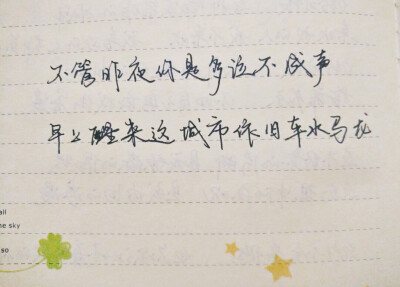 不管昨夜你是多泣不成声
早上醒来这城市依旧车水马龙
all
e sky
so